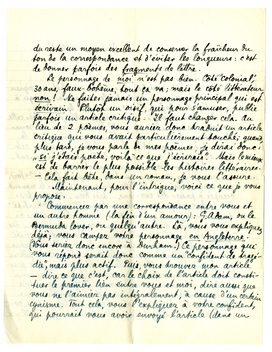 du reste un moyen excellent de conserver la fraîcheur du
ton de la correspondance et d'éviter les longueurs : c'est
de donner parfois des fragments de lettre.
Le personnage de moi n'est pas bien. Côté colonial,
30 ans, faux-bohème, tout ça va; mais le côté littérateur
non! Ne faites jamais un personnage principal qui est
écrivain. Plutôt un oisif, qui pour s'amuser, publie
parfois un article critique. Il faut changer cela. Au
lieu de 2 poèmes, vous auriez donc un article
critique qui vous avait particulièrement touchée; quand
plus tard, je vous parle de mes poèmes, je dirai donc:
si j'étais poète, voilà ce que j'écrirais". Mais le mieux
est de barrer le plus possible les histoires littéraires
– cela fait bête, dans un roman, je vous l'assure.
Maintenant, pour l'intrigue, voici ce que je vous
propose.
Commencer par une correspondance entre vous et
un autre homme (la fin d'un amour): ou le
Bermuda lover, ou quelqu'autre. Là, vous vous expliquez
déjà; vous campez votre personnage en Angleterre.
(Vous seriez donc encore à Durham.) Ce personnage qui
vous répond serait donc comme un confident de tragé-
die, mais plus actif. Puis, vous trouvez mon article
– dire ce que c'est, car le choix de l'article doit consti-
tuer le premier lien entre vous et moi, dire aussi que
vous ne l'aimez pas intégralement, à cause d'un certain
cynisme. Tout cela, vous l'expliquez à votre confident,
qui pourrait vous avoir envoyé l'article (dans un